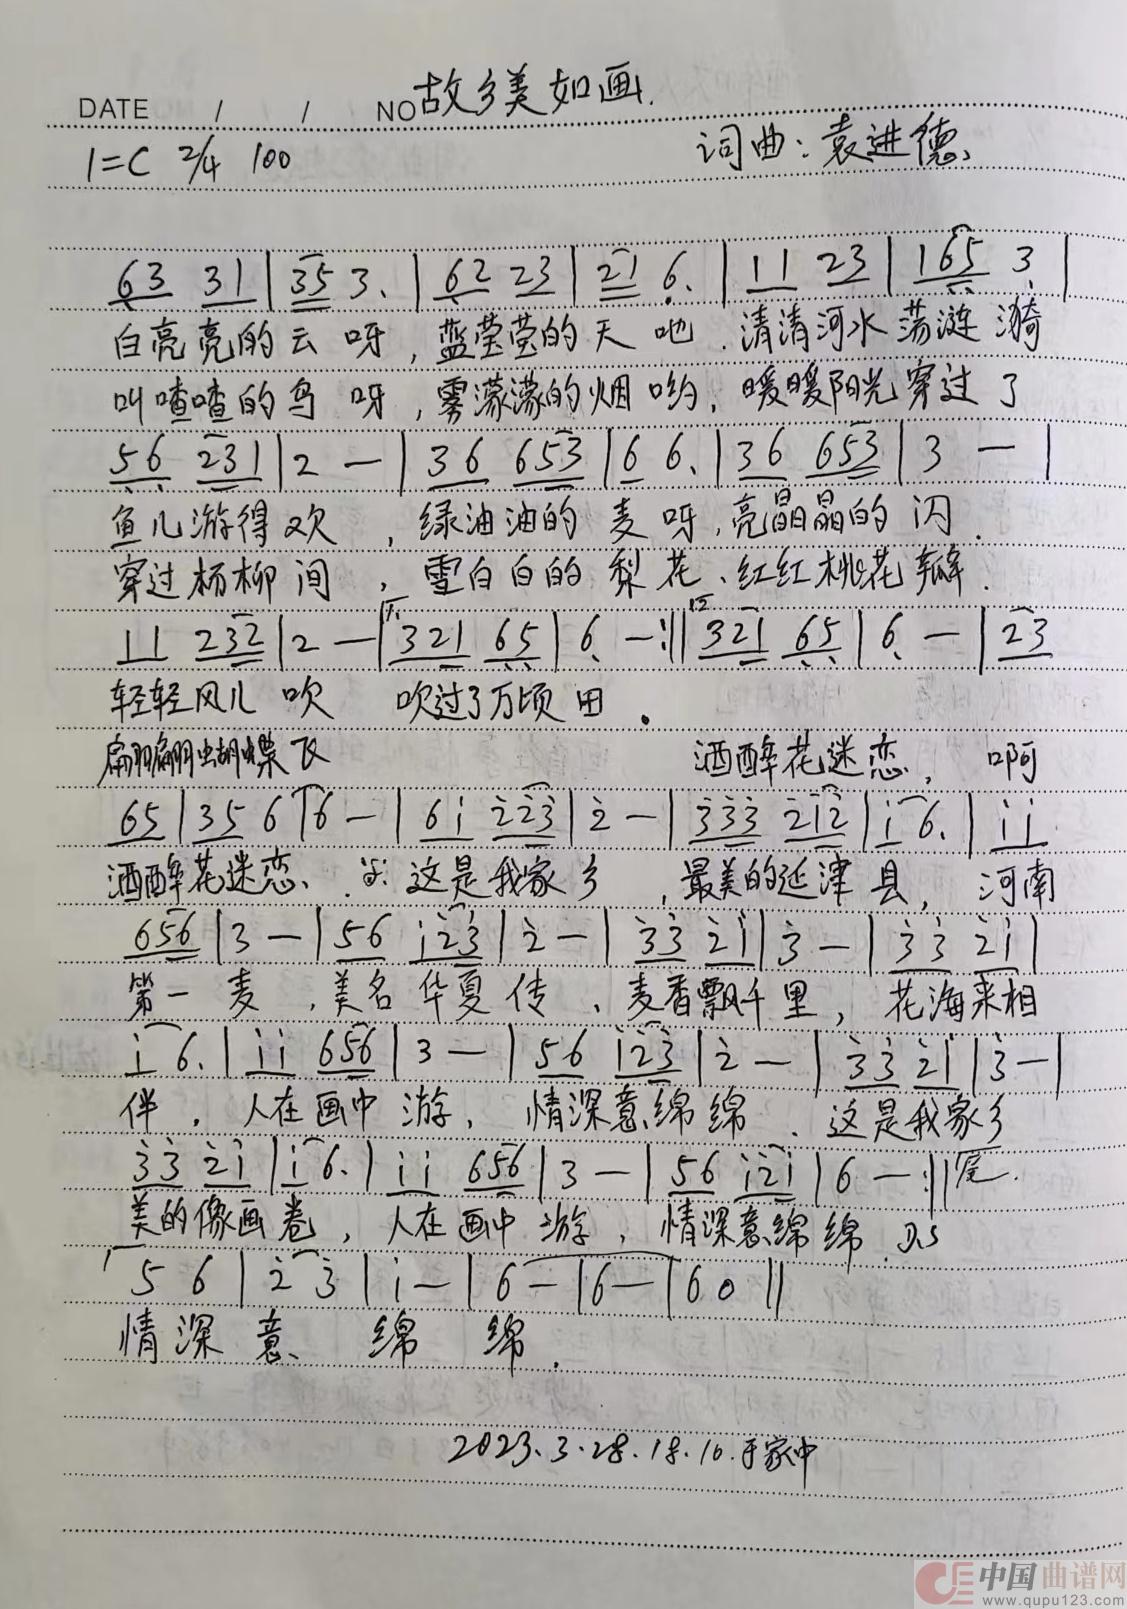 DATE / / / NO 故乡美如画.
1=C 2/4 100 词曲:袁进德
63 31 | 35 3. | 62 23 | 21 6. | 11 23 | 165 3. |
白亮亮的云呀,蓝莹莹的天吔.清清河水荡涟漪
叫喳喳的鸟呀,雾濛濛的烟哟,暖暖阳光穿过了
56 231 | 2 — | 36 653 | 6 6. | 36 653 | 3 — |
鱼儿游得欢,绿油油的麦呀,亮晶晶的闪.
穿过杨柳间,雪白白的梨花、红红桃花瓣.
11 232 | 2 — | 321 65 | 6 — :|| 321 65 | 6 — | 23
轻轻风儿吹 吹过了万顷田.
翩翩蝴蝶飞 洒醉花迷恋, 啊
65 | 35 6 | 6 — | 6i 223 | 2 — | 333 212 | i 6. | ii
洒醉花迷恋、 这是我家乡,最美的延津县,河南
656 | 3 — | 56 i23 | 2 — | 33 2i | 3 — | 33 2i |
第一麦,美名华夏传、麦香飘千里,花海来相
i 6. | ii 656 | 3 — | 56 i23 | 2 — | 33 2i | 3 — |
伴,人在画中游,情深意绵绵.这是我家乡
33 2i | i 6. | ii 656 | 3 — | 56 i2i | 6 — :|| 尾.
美的像画卷,人在画中游,情深意绵绵. D.S
5 6 | 2 3 | i — | 6 — | 6 — | 6 0 ||
情深意 绵 绵.
2023.3.28.18.10.于家中
中国曲谱网
www.qupu123.com